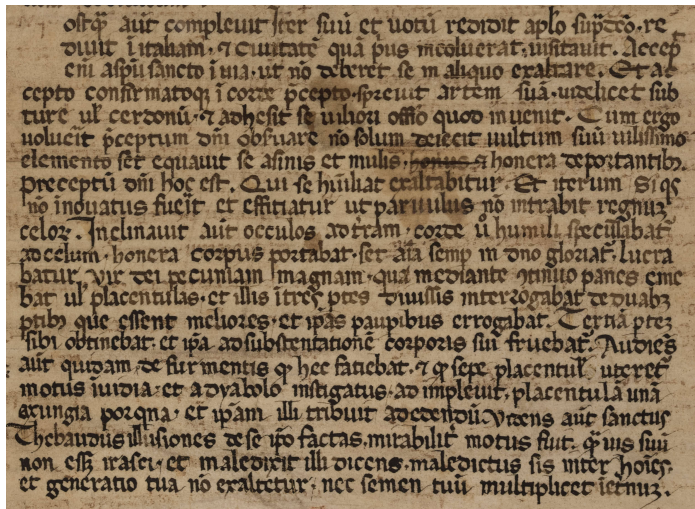 ostq̃ aũt compleuit Iter suũ et uotũ reddidit aplo sup̃dc̃o. re
diuit ĩ italiam. ⁊ ciuitatẽ quã p̃us incoluerat, uisitauit. Accep
em̃ a sp̃u sancto ĩ uia. ut nõ deberet se in aliquo exaltare. Et ac
cepto confirmatoq; ĩ corde p̃cepto. spreuit artem suã. uidelicet sub
ture ul' cerdonũ. ⁊ adhesit se uiliori offio quod inuenit. Cum ergo
voluerit p̃ceptum dñi obsuare nõ solum deiecit uultum suũ uilissimo
elemento set equauit se asinis et mulis. honus ⁊ honera deportantib;.
Preceptũ dñi hoc est. Qui se hũiliat exaltabitur. Et iterum Si qs
nõ ĩnouatus fueĩt et effitiatur ut paruulus nõ intrabit regnuz
celoꝝ. Inclinauit aũt occulos ad t̃ram. corde u̾o humili speculabat̃
ad celum. honera corpus portabat. set aĩa semp in dño gloriat̃. lucra
batur. Vir dei pecuniam magnam. qua mediante 9tinuo panes eme
bat ul' placentulas. et illis ĩ tres ptes diuisis interrogabat de duab;
ptib; que essent meliores. et ip̃as paupibus errogabat. Tertiã ptez
sibi obtinebat. et ip̃a ad substentationẽ corporis sui fruebat̃. Audies
aũt quidam de furmentis q̃ hec fatiebat. ⁊ q̃ sepe placentul' uteret̃
motus ĩuidia. et a dyabolo instigatus. ad impleuit. placentulã unã
axungia porzna. et ip̃am illi tribuit ad edendũ. Videns aũt sanctus
Thebaudus illusiones de se ip̃o factas. mirabilit̃ motus fuit. q̃uis suũ
non eẽt irasci. et maledixit illi dicens. maledictus sis inter hoĩes.
et generatio tua nõ exaltetur. nec semen tuũ multiplicet ĩ et̃nuz.